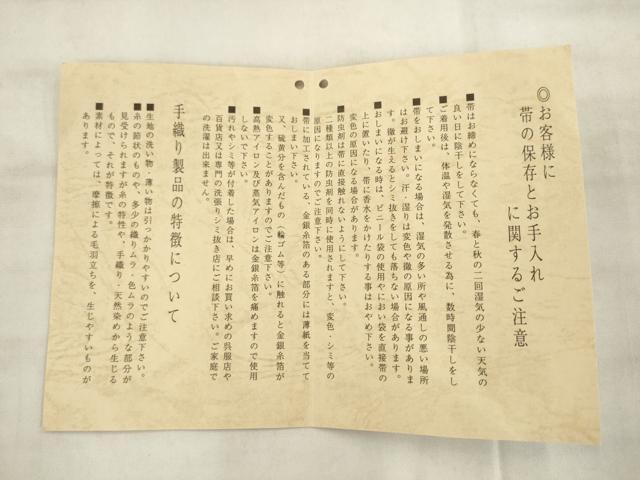 ◎お客様に
帯の保存とお手入れ
に関するご注意
■帯はお締めにならなくても、春と秋の二回湿気の少ない天気の
良い日に陰干しをして下さい。
■ご着用後は、体温や湿気を発散させる為に、数時間陰干しをし
て下さい。
■帯をおしまいになる場合は、湿気の多い所や風通しの悪い場所
はお避け下さい。汗・湿りは変色や黴の原因になる事がありま
す。黴が生えるとシミ抜きをしても落ちない場合があります。
■おしまいになる時は、ビニール袋の使用やにおい袋を直接帯の
上に置いたり、帯に香水をかけたりする事はおやめ下さい。
変色の原因になる場合があります。
■防虫剤は帯に直接触れないようにして下さい。
二種類以上の防虫剤を同時に使用されますと、変色・シミ等の
原因になりますのでご注意下さい。
■帯に加工されている、金銀糸箔のある部分には薄紙を当てて
おしまい下さい。
又、硫黄分を含んだもの（輪ゴム等）に触れると金銀糸箔が
変色することがありますのでご注意下さい。
■高熱アイロン及び蒸気アイロンは金銀糸箔を痛めますので使用
しないで下さい。
■汚れやシミ等が付着した場合は、早めにお買い求めの呉服店や
百貨店又は専門の洗張りシミ抜き店にご相談下さい。ご家庭で
の洗濯は出来ません。
手織り製品の特徴について
■生地の洗い物・薄い物は引っかかりやすいのでご注意下さい。
■糸の節状のものや、多少の織りムラ・色ムラのような部分が
見受けられますが糸の特性や、手織り・天然染めから生じる
もので、それが特徴です。
■素材によっては、摩擦による毛羽立ちを、生じやすいものが
あります。